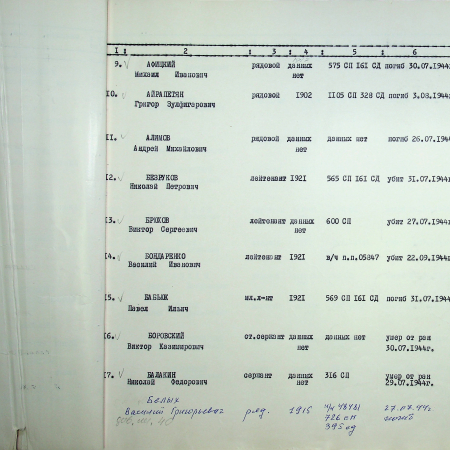 1 : 2 : 3 : 4 : 5 : 6
9. АФИЦКИЙ рядовой данных 575 СП 161 СД погиб 30.07.1944г.
Михаил Иванович нет
10. АЙРАПЕТЯН рядовой 1902 1105 СП 328 СД погиб 3.08.1944г.
Григор Зулфигарович
11. АЛИМОВ рядовой данных данных нет погиб 26.07.1944г.
Андрей Михайлович нет
12. БЕЗРУКОВ лейтенант 1921 565 СП 161 СД убит 31.07.1944г.
Николай Петрович
13. БРЮХОВ лейтенант данных 600 СП убит 27.07.1944г.
Виктор Сергеевич нет
14. БОНДАРЕНКО лейтенант 1921 в/ч п.п.05847 убит 22.09.1944г.
Василий Иванович
15. БАБЫК мл.л-нт 1921 569 СП 161 СД погиб 31.07.1944г.
Павел Ильич
16. БОРОВСКИЙ ст.сержант данных данных нет умер от ран
Виктор Казимирович нет 30.07.1944г.
17. БАЛАКИН сержант данных 316 СП умер от ран
Николай Федорович нет 29.07.1944г.
Белых
Василий Григорьевич ряд. 1915 27.07.44г.
726 сп
395 сд